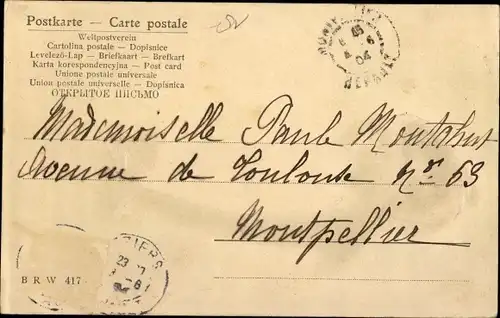 Postkarte — Carte postale
Weltpostverein
Cartolina postale — Dopisnice
Levelező-Lap — Briefkaart — Brefkort
Karta korespondencyjna — Post card
Unione postale universale
Union postale universelle — Dopisnica
ОТКРЫТОЕ ПИСЬМО
04
HERAULT
Mademoiselle Paule
Avenue de Toulouse 63
Montpellier
ZIERS
23
B R W 417